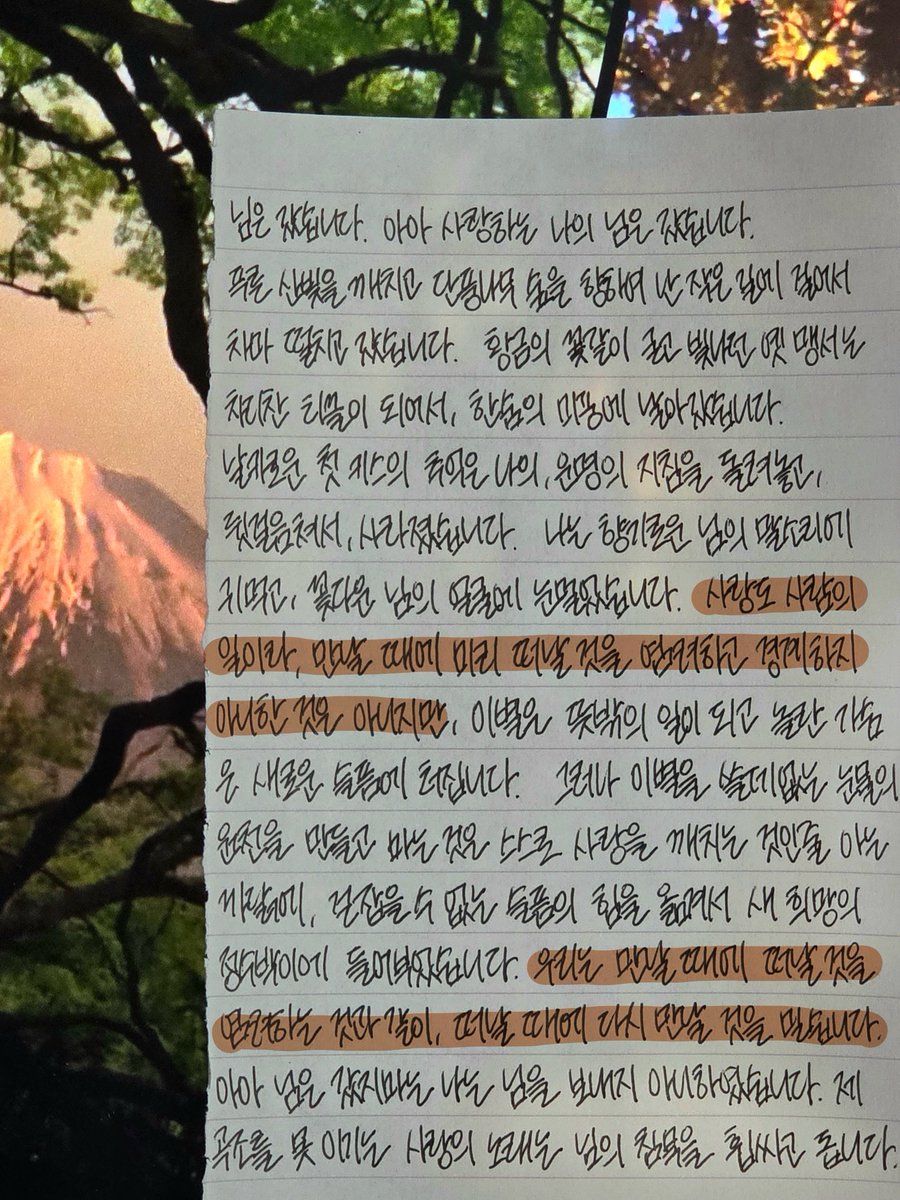 님은 갔습니다. 아아 사랑하는 나의 님은 갔습니다.
푸른 산빛을 깨치고 단풍나무 숲을 향하여 난 작은 길에 걸어서
차마 떨치고 갔습니다. 황금의 꽃같이 굳고 빛나던 옛 맹서는
차디찬 티끌이 되어서, 한숨의 미풍에 날아갔습니다.
날카로운 첫 키스의 추억은 나의, 운명의 지침을 돌려놓고,
뒷걸음쳐서, 사라졌습니다. 나는 향기로운 님의 말소리에
귀먹고, 꽃다운 님의 얼굴에 눈멀었습니다. 사랑도 사람의
일이라, 만날 때에 미리 떠날 것을 염려하고 경계하지
아니한 것은 아니지만, 이별은 뜻밖의 일이 되고 놀란 가슴
은 새로운 슬픔에 터집니다. 그러나 이별을 쓸데없는 눈물의
원천을 만들고 마는 것은 스스로 사랑을 깨치는 것인줄 아는
까닭에, 걷잡을 수 없는 슬픔의 힘을 옮겨서 새 희망의
정수박이에 들어부었습니다. 우리는 만날 때에 떠날 것을
염려하는 것과 같이, 떠날 때에 다시 만날 것을 믿습니다.
아아 님은 갔지마는 나는 님을 보내지 아니하였습니다. 제
곡조를 못 이기는 사랑의 노래는 님의 침묵을 휩싸고 돕니다.